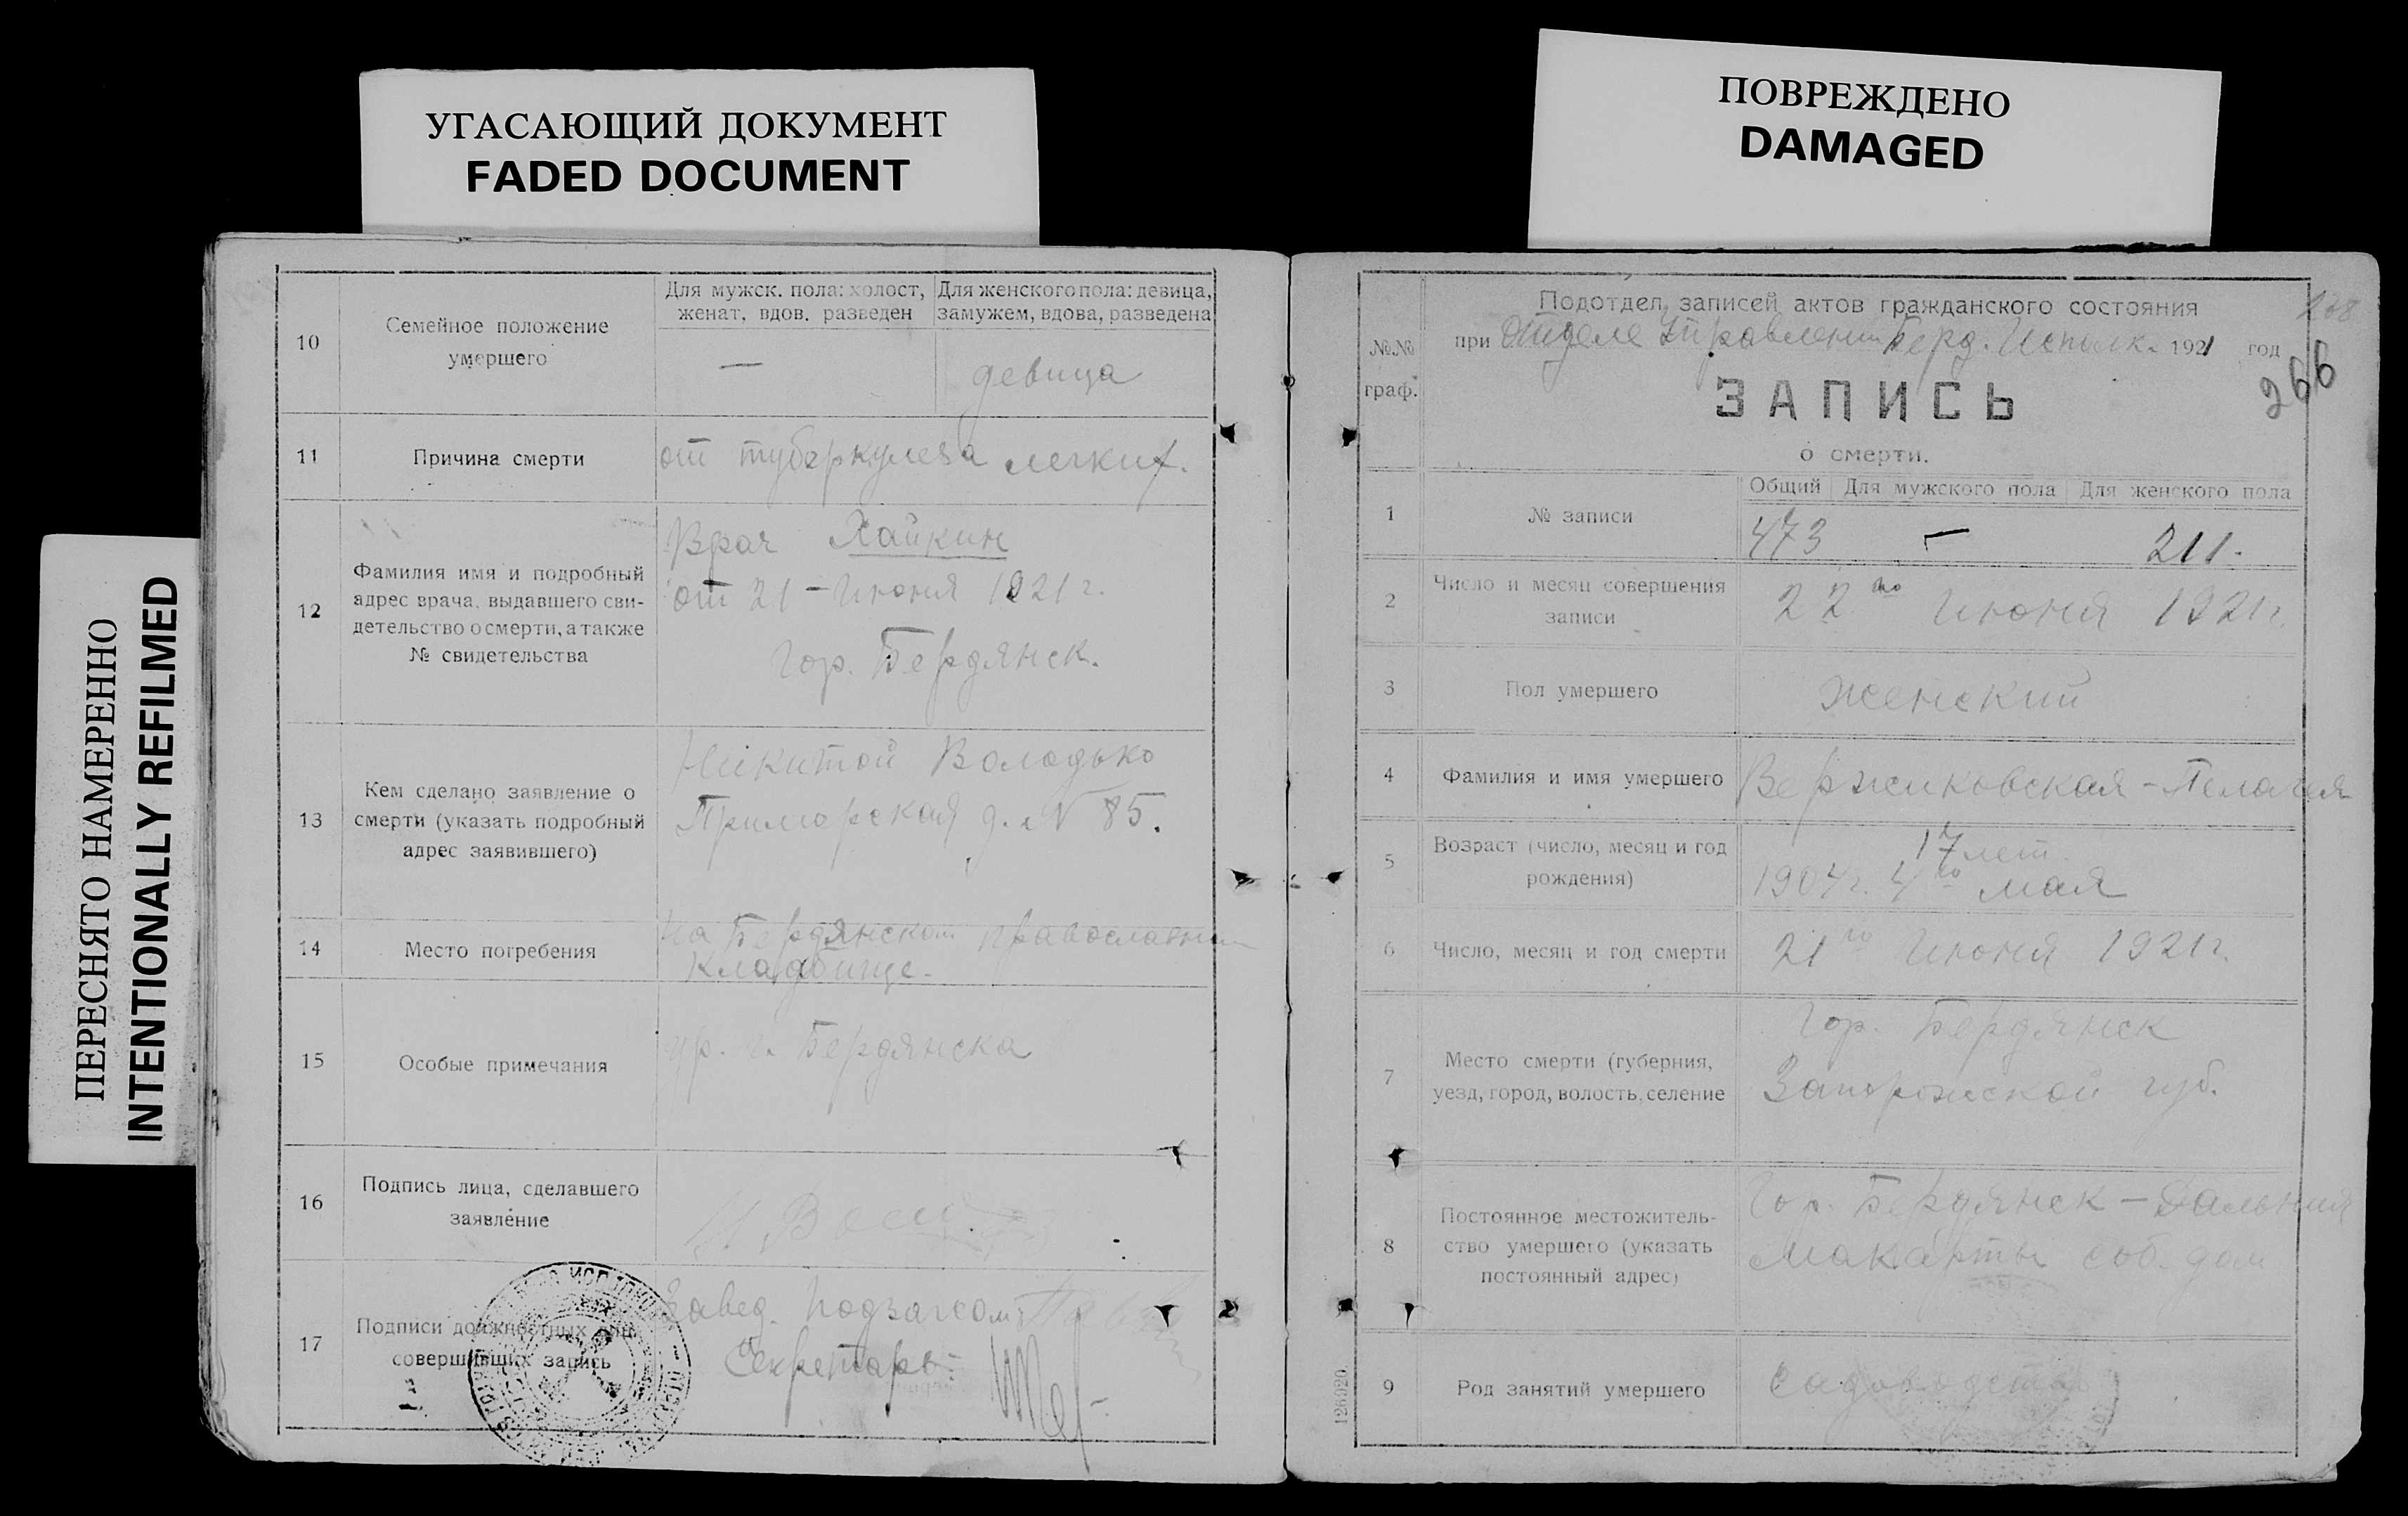 УГАСАЮЩИЙ ДОКУМЕНТ
FADED DOCUMENT
ПОВРЕЖДЕНО
DAMAGED
ПЕРЕСНЯТО НАМЕРЕННО
INTENTIONALLY REFILMED
10
Семейное положение
умершего
Для мужск. пола: холост,
женат, вдов. разведен
Для женского пола: девица,
замужем, вдова, разведена
—
девица
11
Причина смерти
от туберкулеза легких.
12
Фамилия имя и подробный
адрес врача, выдавшего сви-
детельство о смерти, а также
№ свидетельства
Врач Хайкин
от 21 – Июня 1921 г.
Гор. Бердянск.
13
Кем сделано заявление о
смерти (указать подробный
адрес заявившего)
Никитой Володько
Приморская д. № 85.
14
Место погребения
На Бердянском православном
кладбище.
15
Особые примечания
ур. г. Бердянска
16
Подпись лица, сделавшего
заявление
17
Подписи должностных лиц
совершивших запись
Завед. Подзагсом
Секретарь:
Подотдел записей актов гражданского состояния
при Отделе Управления Берд. Исполк. 1921 год
268
266
№№
граф.
ЗАПИСЬ
о смерти.
1
№ записи
Общий
Для мужского пола
Для женского пола
473 — 211.
2
Число и месяц совершения
записи
22го Июня 1921 г.
3
Пол умершего
женский
4
Фамилия и имя умершего
Вержиковская – Пелагея
5
Возраст (число, месяц и год
рождения)
17 лет.
1904 г. 4го мая
6
Число, месяц и год смерти
21го Июня 1921 г.
7
Место смерти (губерния,
уезд, город, волость, селение
Гор. Бердянск
Запорожской губ.
8
Постоянное местожитель-
ство умершего (указать
постоянный адрес)
Гор. Бердянск – Дальния
Макорты соб. дом
9
Род занятий умершего
садоводство
126920